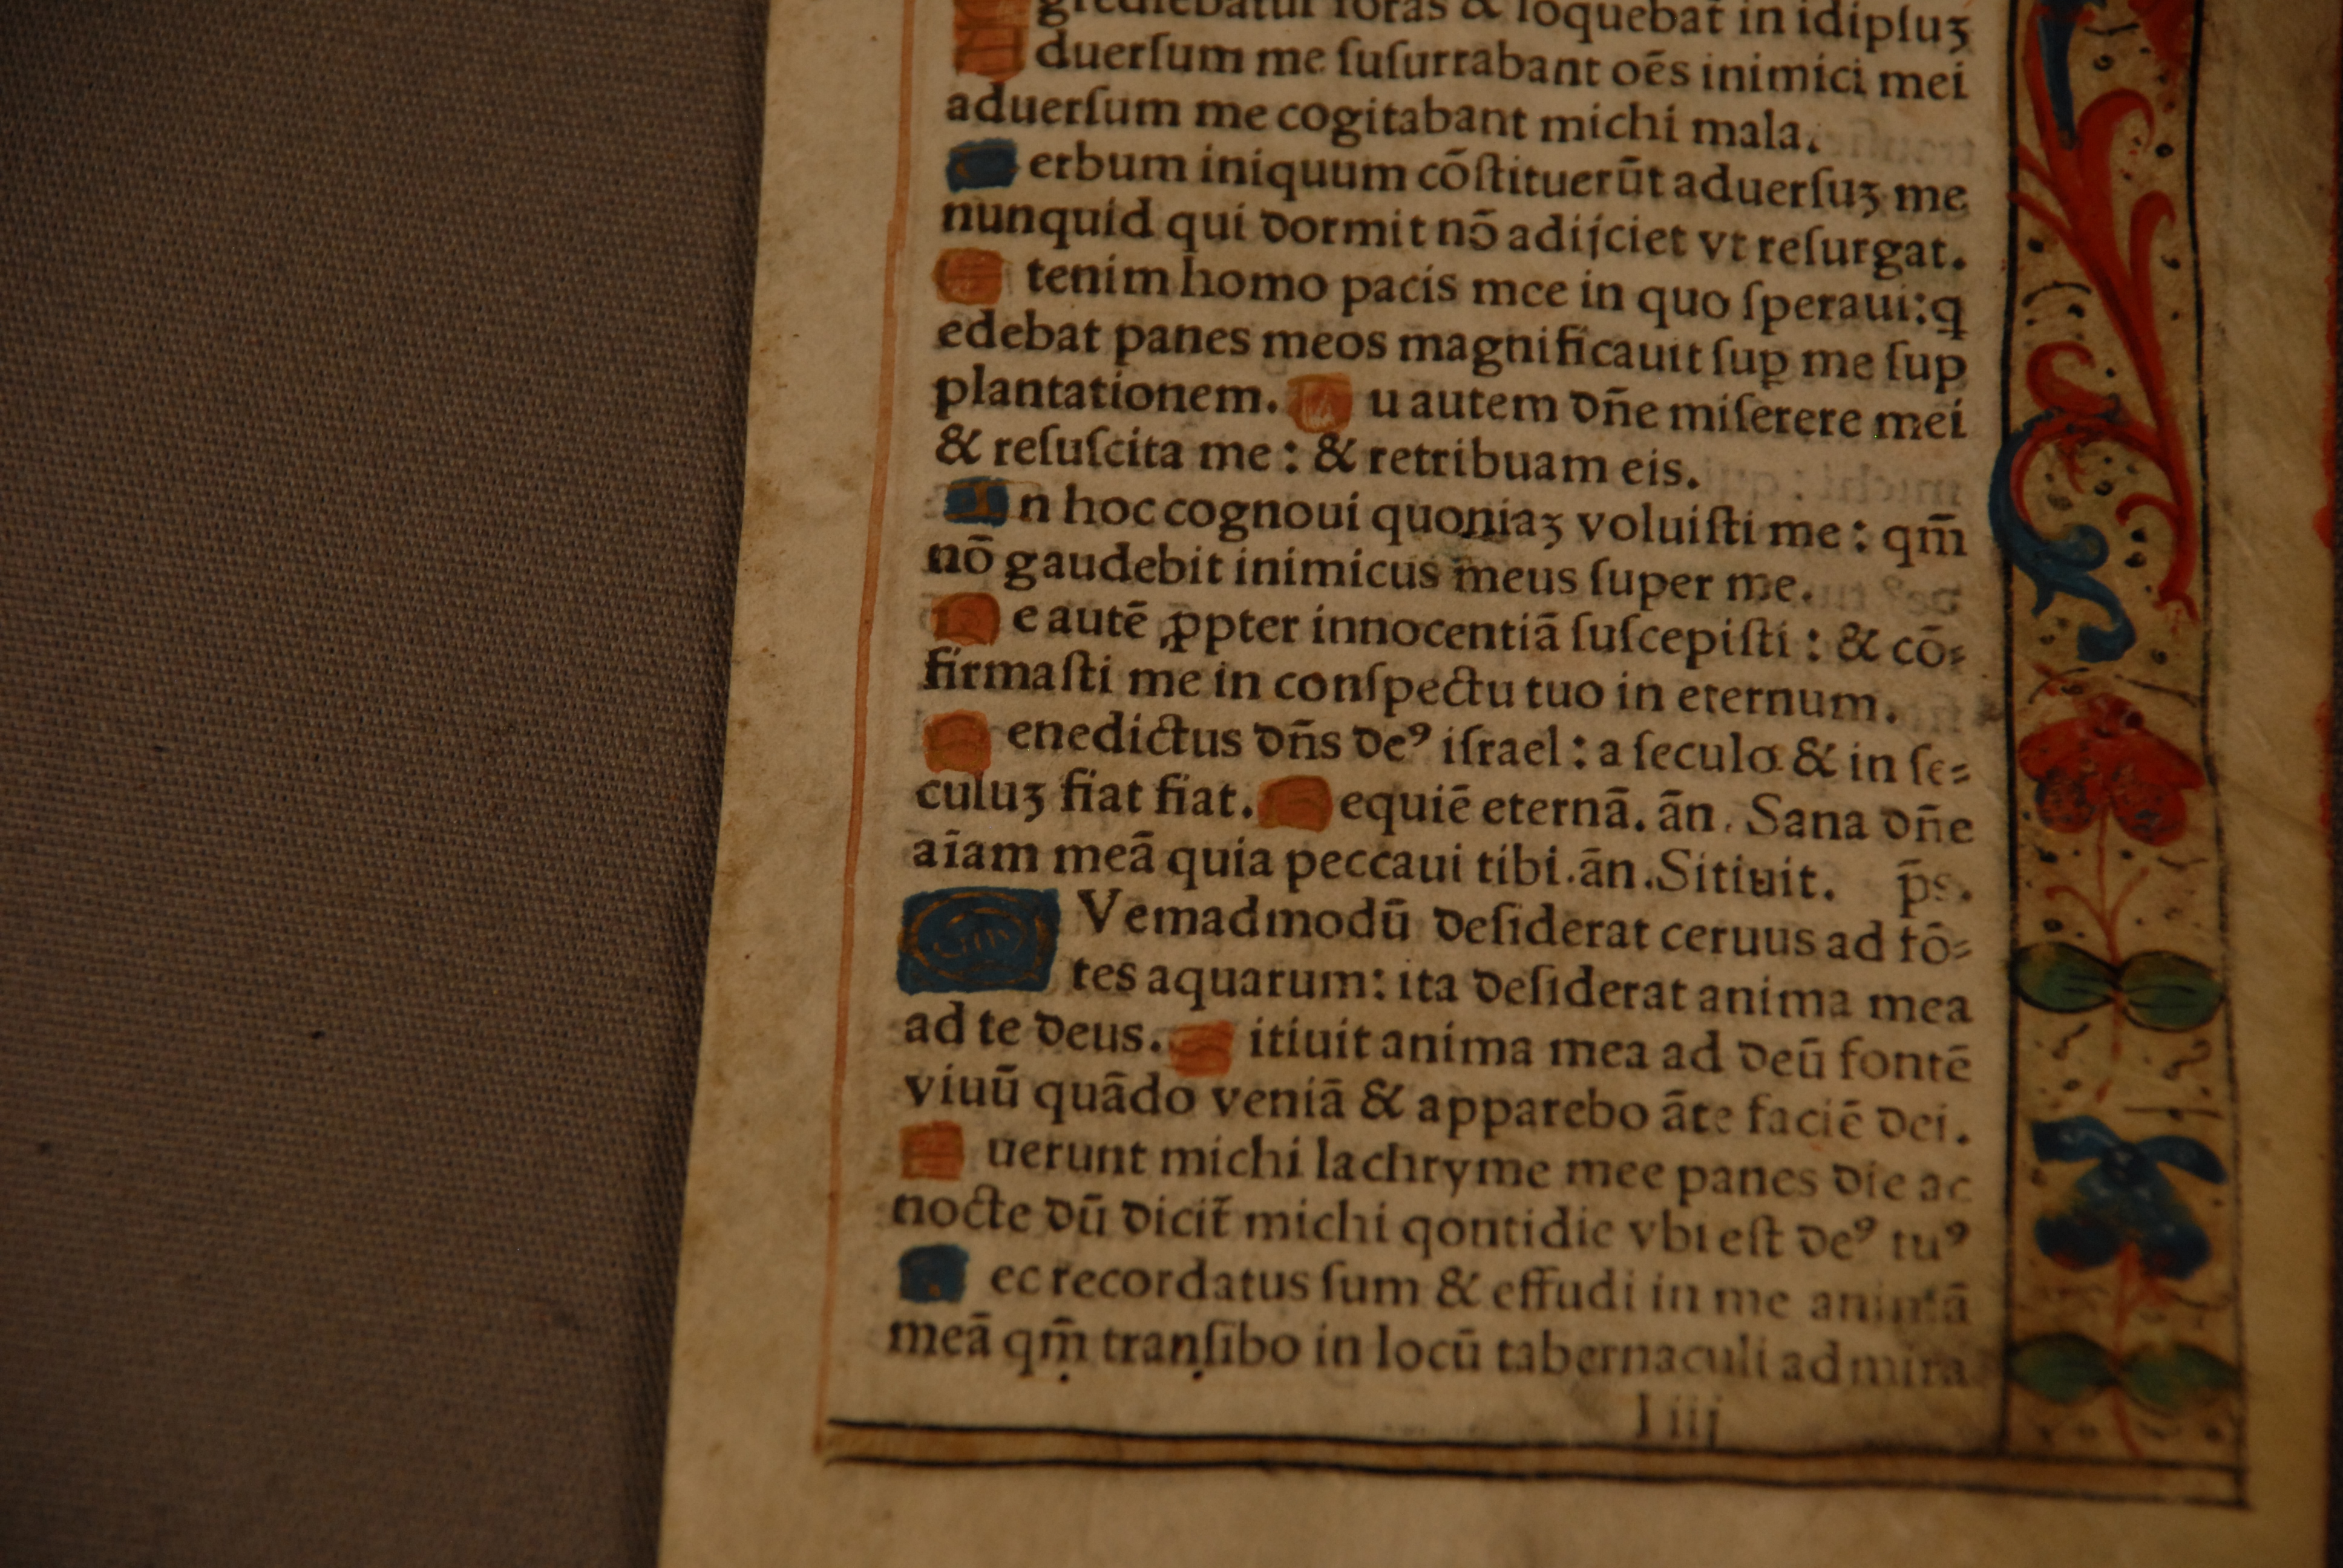 grediebatur foras & loquebat̄ in idipſuꝫ
A duerſum me ſuſurrabant oēs inimici mei
aduerſum me cogitabant michi mala.
erbum iniquum cōſtituerūt aduerſuꝫ me
nunquid qui dormit nō adijciet vt reſurgat.
E tenim homo pacis mee in quo ſperaui: q
edebat panes meos magnificauit ſup me ſup
plantationem. T u autem dn̄e miſerere mei
& reſuſcita me : & retribuam eis.
I n hoc cognoui quoniaꝫ voluiſti me : qm̄
nō gaudebit inimicus meus ſuper me.
M e autē ꝓpter innocentiā ſuſcepiſti : & cō⸗
firmaſti me in conſpectu tuo in eternum.
B enedictus dn̄s deꝰ iſrael : a ſeculo & in ſe⸗
culuꝫ fiat fiat. R equiē eternā. ān. Sana dn̄e
aīam meā quia peccaui tibi. ān. Sitiuit. p̄s.
Q Vemadmodū deſiderat ceruus ad fō⸗
tes aquarum: ita deſiderat anima mea
ad te deus. S itiuit anima mea ad deū fontē
viuū quādo veniā & apparebo āte faciē dei.
F uerunt michi lachryme mee panes die ac
nocte dū dicit̄ michi qontidie vbi eſt deꝰ tuꝰ
H ec recordatus ſum & effudi in me animā
meā qm̄ tranſibo in locū tabernaculi ad mira
I iij